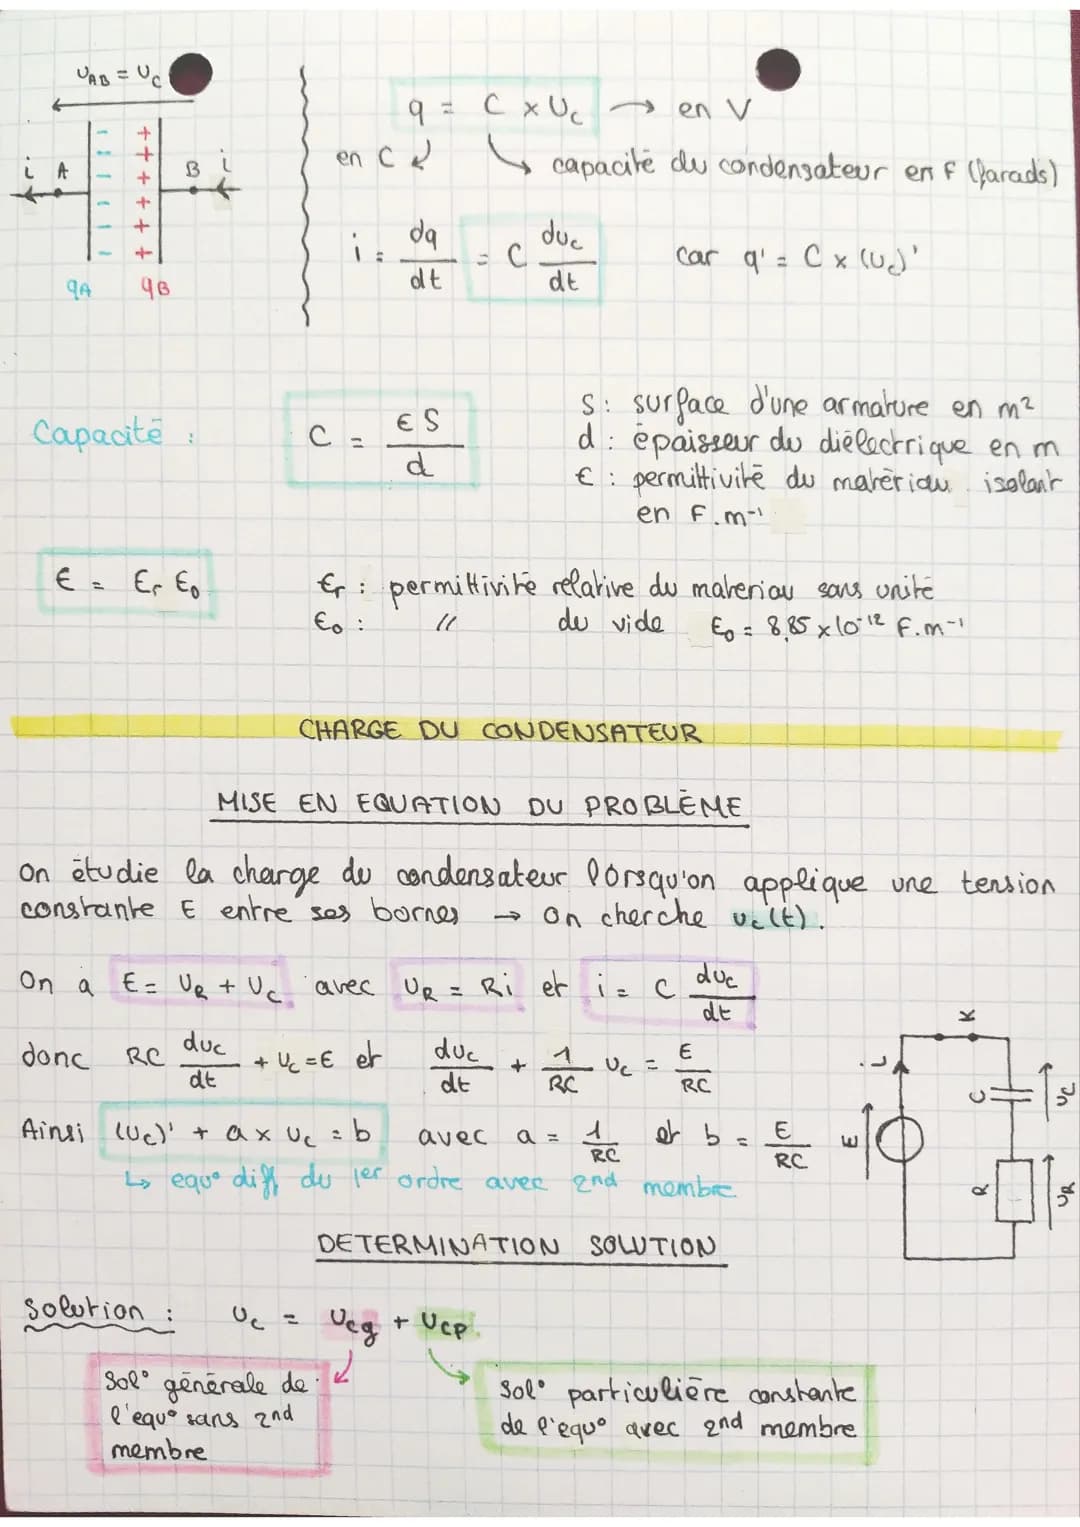 U_AB = U_C
i A
B i
- - - - - -
+ + + + + +
qA qB
q = C × U_c → en V
en C
capacité du condensateur en F (farads)
i = dq/dt = C du_c/dt car q' = C × (U_c)'
Capacité : C = ϵS/d
S : surface d'une armature en m²
d : épaisseur du diélectrique en m
ϵ : permittivité du matériau isolant
en F.m⁻¹
ϵ = ϵr ϵ₀
ϵr : permittivité relative du materiau sans unité
ϵ₀ : // du vide ϵ₀ = 8,85 × 10⁻¹² F.m⁻¹
CHARGE DU CONDENSATEUR
MISE EN EQUATION DU PROBLÈME
On étudie la charge du condensateur lorsqu'on applique une tension
constante E entre ses bornes → on cherche u_c(t).
On a E = U_R + U_C avec U_R = Ri et i = C du_c/dt
donc RC du_c/dt + U_c = E et du_c/dt + 1/RC U_c = E/RC
Ainsi (U_c)' + a × U_c = b avec a = 1/RC et b = E/RC
↳ equ° diff du 1er ordre avec 2nd membre
K
i
E
C
U_C
R
U_R
DETERMINATION SOLUTION
solution : U_c = U_cg + U_cp
Sol° générale de
l'equ° sans 2nd
membre
Sol° particulière constante
de l'equ° avec 2nd membre